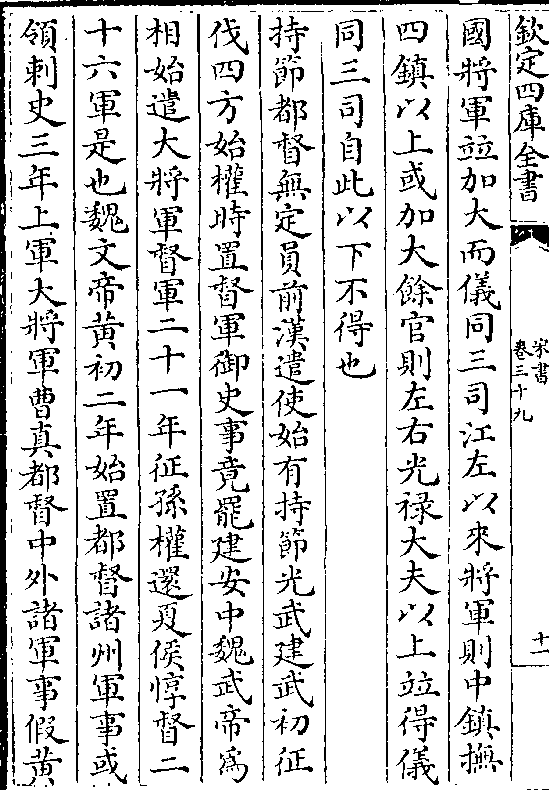 欽定四庫全書
宋書
卷三十九
十一
國將軍並加大而儀同三司江左以來將軍則中鎮撫
四鎮以上或加大餘官則左右光祿大夫以上並得儀
同三司自此以下不得也
持節都督無定員前漢遣使始有持節光武建武初征
伐四方始權時置督軍御史事竟罷建安中魏武帝為
相始遣大將軍督軍二十一年征孫權還夏侯惇督二
十六軍是也魏文帝黃初二年始置都督諸州軍事或
領刺史三年上軍大將軍曹真都督中外諸軍事假黃